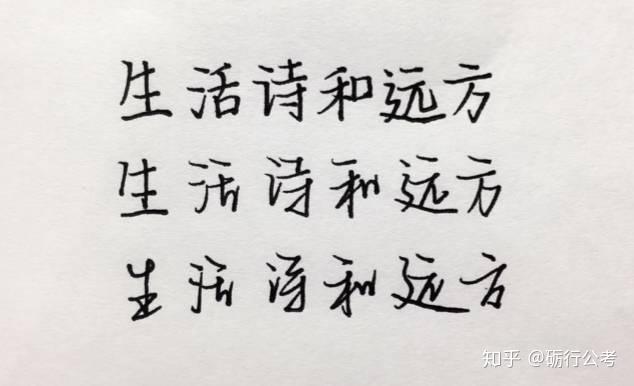 生活诗和远方
生活诗和远方
生活诗和远方
知乎 @砺行公考